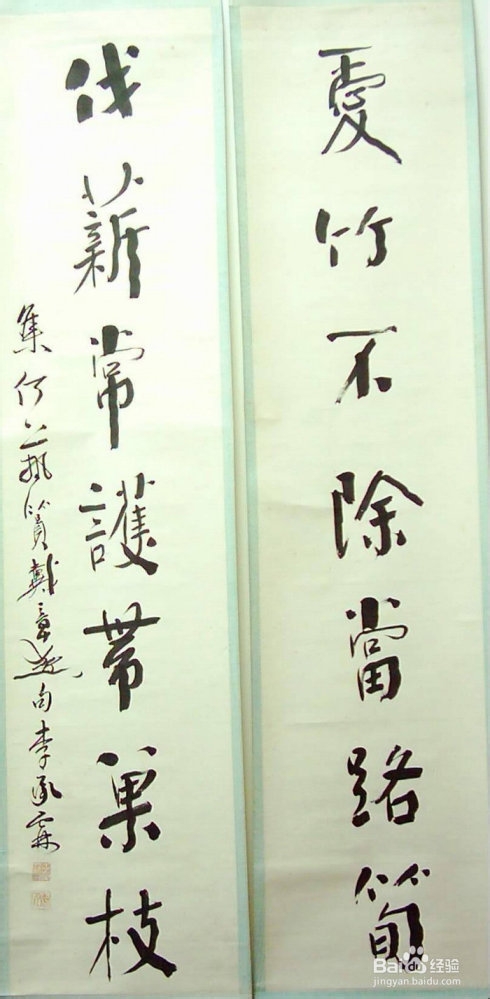 愛竹不除當路筍
伐薪常護帶巢枝
集 句李承霖
Baidu经验
jingyan.baidu.com